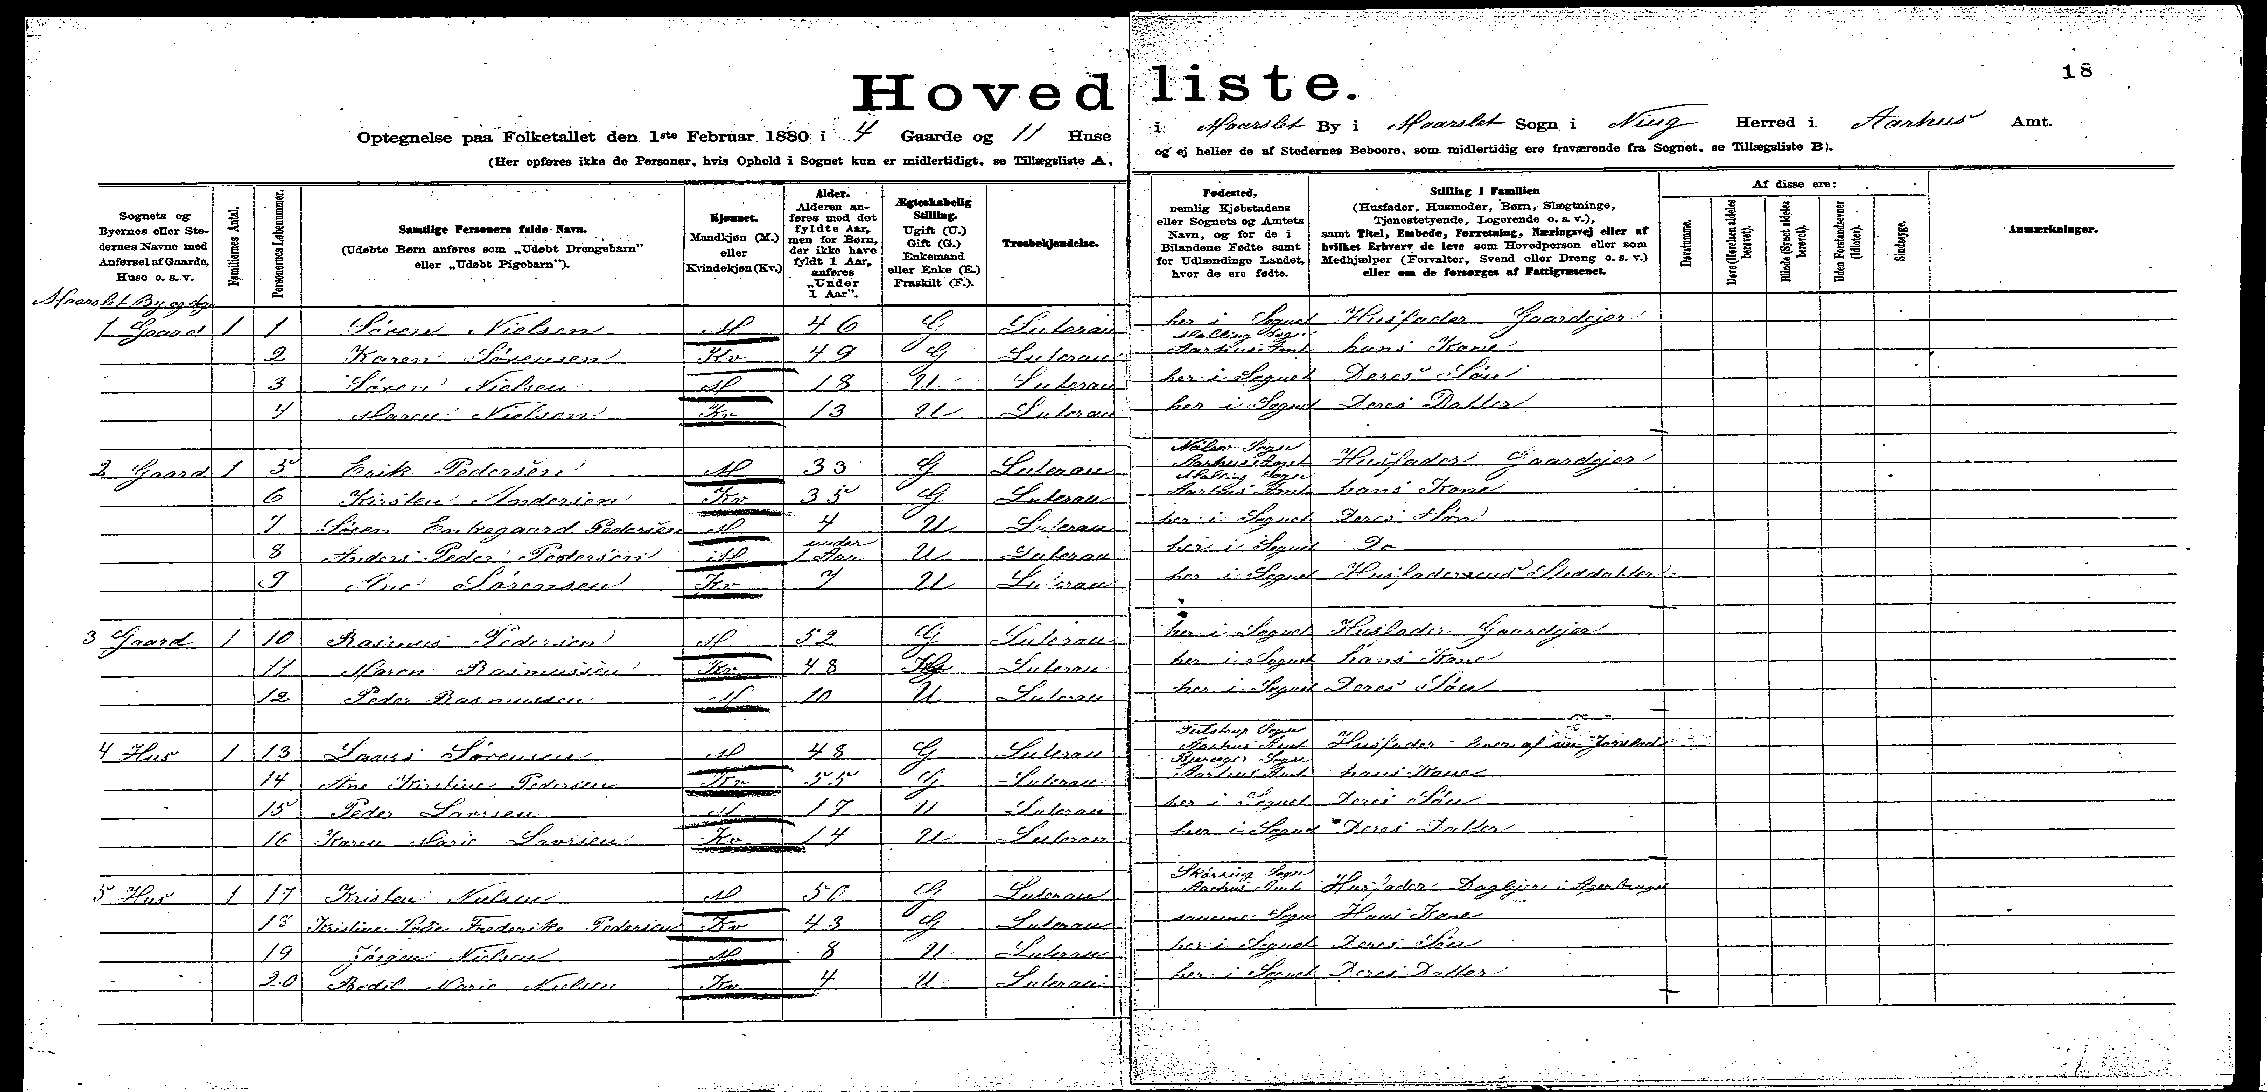 18
Hovedliste.
Optegnelse paa Folketallet den 1ste Februar 1880 i 4 Gaarde og 11 Huse i Maarslet By i Maarslet Sogn i Ning Herred i Aarhus Amt.
(Her opføres ikke de Personer, hvis Ophold i Sognet kun er midlertidigt, se Tillægsliste A, og ej heller de af Stedernes Beboere, som midlertidig ere fraværende fra Sognet, se Tillægsliste B).
Sognets og Byernes eller Stedernes Navne med Anførsel af Gaarde, Huse o. s. v.
Familiernes Antal.
Personernes Løbenummer.
Samtlige Personers fulde Navn.
(Udøbte Børn anføres som „Udøbt Drengebarn" eller „Udøbt Pigebarn").
Kjønnet.
Mandkjøn (M.) eller Kvindekjøn (Kv.)
Alder.
Alderen anføres med det fyldte Aar, men for Børn, der ikke have fyldt 1 Aar, anføres „Under 1 Aar".
Ægteskabelig Stilling.
Ugift (U.) Gift (G.) Enkemand eller Enke (E.) Fraskilt (F.).
Troesbekjendelse.
Fødested,
nemlig Kjøbstadens eller Sognets og Amtets Navn, og for de i Bilandene Fødte samt for Udlændinge Landet, hvor de ere fødte.
Stilling i Familien
(Husfader, Husmoder, Børn, Slægtninge, Tjenestetyende, Logerende o. s. v.), samt Titel, Embede, Forretning, Næringsvej eller af hvilket Erhverv de leve som Hovedperson eller som Medhjælper (Forvalter, Svend eller Dreng o. s. v.) eller om de forsørges af Fattigvæsenet.
Af disse ere:
Døvstumme.
Døve (Hørelsen aldeles berøvet).
Blinde (Synet aldeles berøvet).
Uden Forstandsevner (Idioter).
Sindssyge.
Anmærkninger.
Maarslet By og
1 Gaard 1 1 Søren Nielsen M 46 G Luteran her i Sognet Husfader Gaardejer
2 Karen Sørensen Kv 49 G Luteran Malling Sogn Aarhus Amt hans Kone
3 Søren Nielsen M 18 U Luteran her i Sognet Deres Søn
4 Maren Nielsen Kv 13 U Luteran her i Sognet Deres Datter
2 Gaard 1 5 Erik Pedersen M 33 G Luteran Sogn Aarhus Amt Husfader Gaardejer
6 Kirsten Andersen Kv 35 G Luteran Malling Sogn Aarhus Amt hans Kone
7 Søren Enkegaard Pedersen M 4 U Luteran her i Sognet Deres Søn
8 Anders Peder Pedersen M under 1 Aar U Luteran her i Sognet Do
9 Ane Sørensen Kv 7 U Luteran her i Sognet Husfaderens Steddatter
3 Gaard 1 10 Rasmus Pedersen M 52 G Luteran her i Sognet Husfader Gaardejer
11 Maren Rasmussen Kv 48 G Luteran her i Sognet hans Kone
12 Peder Rasmussen M 10 U Luteran her i Sognet Deres Søn
4 Hus 1 13 Laurs Sørensen M 48 G Luteran Sogn Aarhus Amt Husfader lever af sin Jordlod
14 Ane Kirstine Pedersen Kv 55 G Luteran Sogn Aarhus Amt hans Kone
15 Peder Laursen M 17 U Luteran her i Sognet Deres Søn
16 Karen Marie Laursen Kv 14 U Luteran her i Sognet Deres Datter
5 Hus 1 17 Kristen Nielsen M 50 G Luteran Sogn Aarhus Amt Husfader Daglejer i Agerbruget
18 Kristine Frederike Pedersen Kv 43 G Luteran samme Sogn Hans Kone
19 Jörgen Nielsen M 8 U Luteran her i Sognet Deres Søn
20 Bodil Marie Nielsen Kv 4 U Luteran her i Sognet Deres Datter